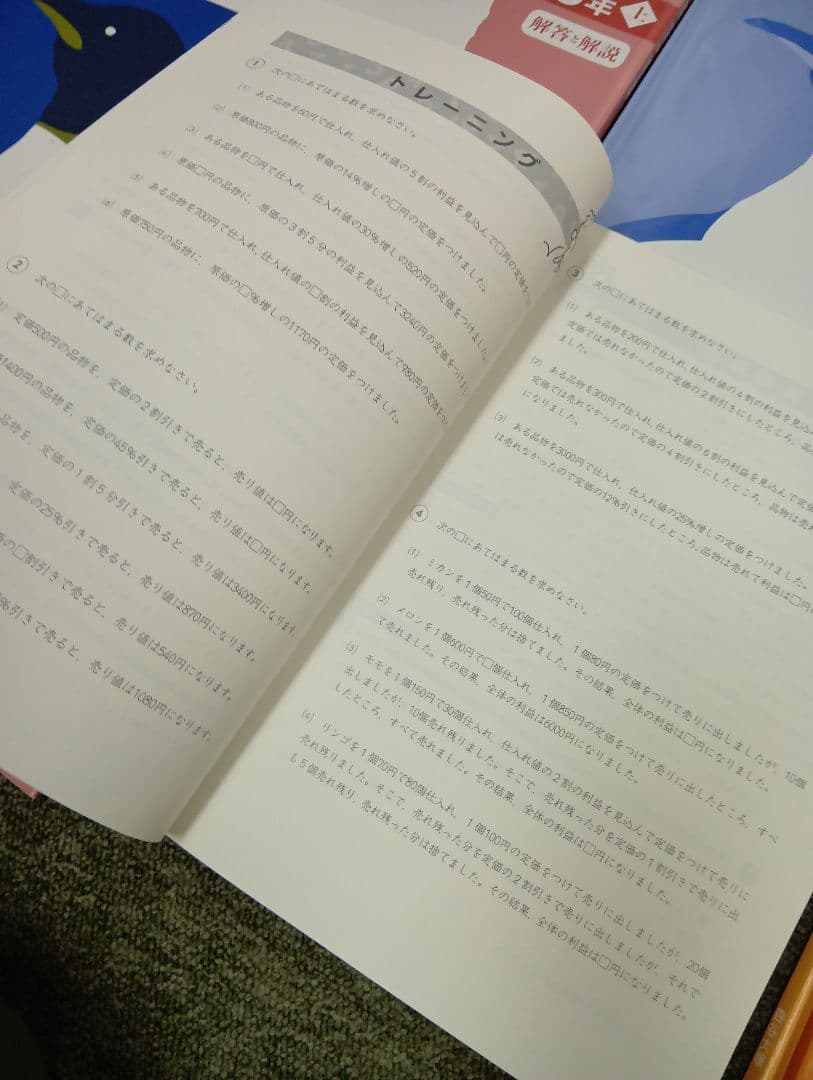 年 上
解答と解説
トレーニング
① 次の□にあてはまる数を求めなさい。
(1) ある品物を60円で仕入れ、仕入れ値の5割の利益を見込んで□円の定価
(2) 原価800円の品物に、原価の14%増しの□円の定価をつけました。
(3) ある品物を□円で仕入れ、仕入れ値の30%増しの520円の定価をつけました。
(4) 原価□円の品物に、原価の3割5分の利益を見込んで3240円の定価をつけまし
(5) ある品物を700円で仕入れ、仕入れ値の□割の利益を見込んで980円の定価を
(6) 原価750円の品物に、原価の□%増しの1170円の定価をつけました。
② 次の□にあてはまる数を求めなさい。
定価500円の品物を、定価の2割引きで売ると、売り値は□円になります。
1400円の品物を、定価の45%引きで売ると、売り値は□円になります。
品物を、定価の1割5分引きで売ると、売り値は3400円になります。
定価の25%引きで売ると、売り値は870円になります。
の□割引きで売ると、売り値は540円になります。
%引きで売ると、売り値は1080円になります。
③ 次の□にあてはまる数を求めなさい。
(1) ある品物を200円で仕入れ、仕入れ値の4割の利益を見込
定価では売れなかったので定価の2割引きにしたところ、品
ました。
(2) ある品物を300円で仕入れ、仕入れ値の6割の利益を見込んで定価
定価では売れなかったので定価の4割引きにしたところ、品物は
になりました。
(3) ある品物を3000円で仕入れ、仕入れ値の25%増しの定価をつけました。
は売れなかったので定価の12%引きにしたところ、品物は売れて利益は□円
④ 次の□にあてはまる数を求めなさい。
(1) ミカンを1個50円で100個仕入れ、1個80円の定価をつけて売りに出しましたが、10個
売れ残り、売れ残った分は捨てました。その結果、全体の利益は□円になりました。
(2) メロンを1個600円で□個仕入れ、1個850円の定価をつけて売りに出したところ、すべ
て売れました。その結果、全体の利益は6000円になりました。
(3) モモを1個150円で30個仕入れ、仕入れ値の2割の利益を見込んで定価をつけて売りに
出しましたが、10個売れ残りました。そこで、売れ残った分を定価の1割引きで売りに出
したところ、すべて売れました。その結果、全体の利益は□円になりました。
(4) リンゴを1個70円で80個仕入れ、1個100円の定価をつけて売りに出しましたが、20個
売れ残りました。そこで、売れ残った分を定価の2割引きで売りに出しましたが、それで
も5個売れ残り、売れ残った分は捨てました。その結果、全体の利益は□円になりました。